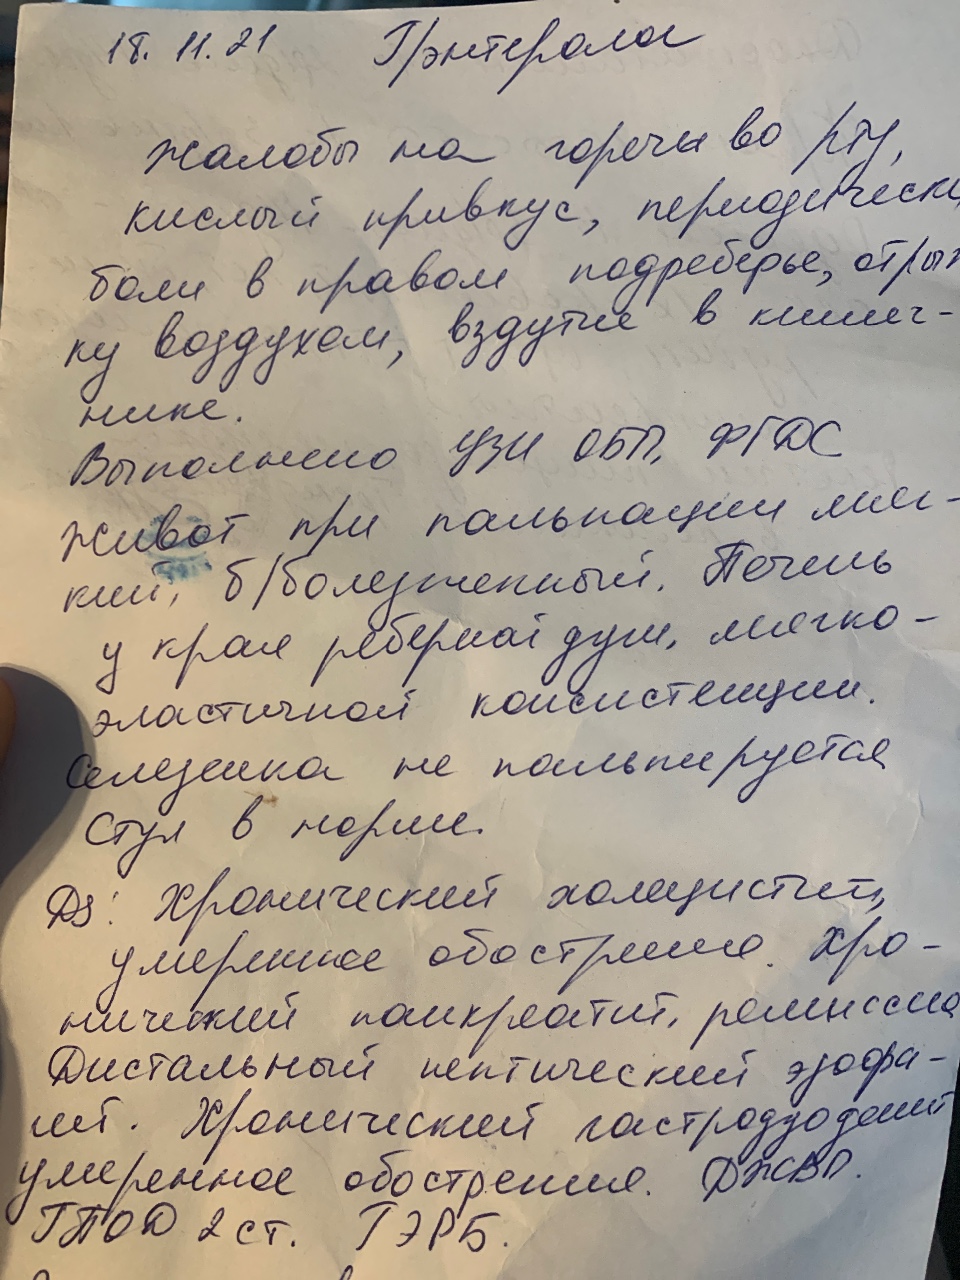 18.11.21 Гэнтеролог
Жалобы на горечь во рту,
кислый привкус, периодически
боли в правом подреберье, отрыж
ку воздухом, вздутие в кишеч-
нике.
Выполнено УЗИ ОБП, ФГДС
Живот при пальпации мяг-
кий, б/болезненный. Печень
у края реберной дуги, мягко-
эластичной консистенции.
Селезенка не пальпируется
Стул в норме.
Ds: Хронический холецистит,
умеренное обострение. Хро-
нический панкреатит, ремиссия
Дистальный пептический эзофа-
гит. Хронический гастродуоденит
умеренное обострение. ДЖВП.
ГПОД 2 ст. ГЭРБ.